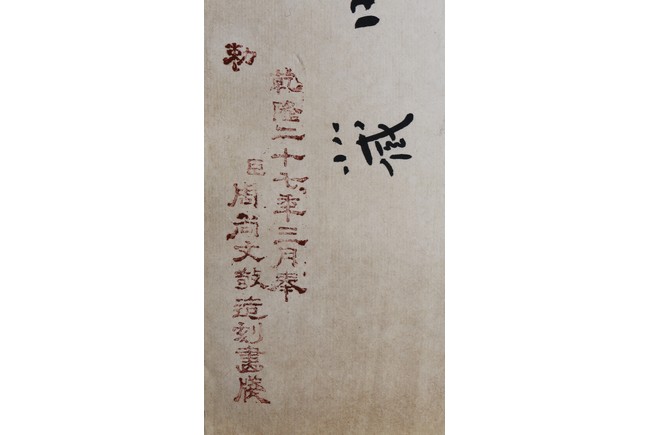 乾隆二十七年三月奉
勅
臣周尚文敬造刻畫